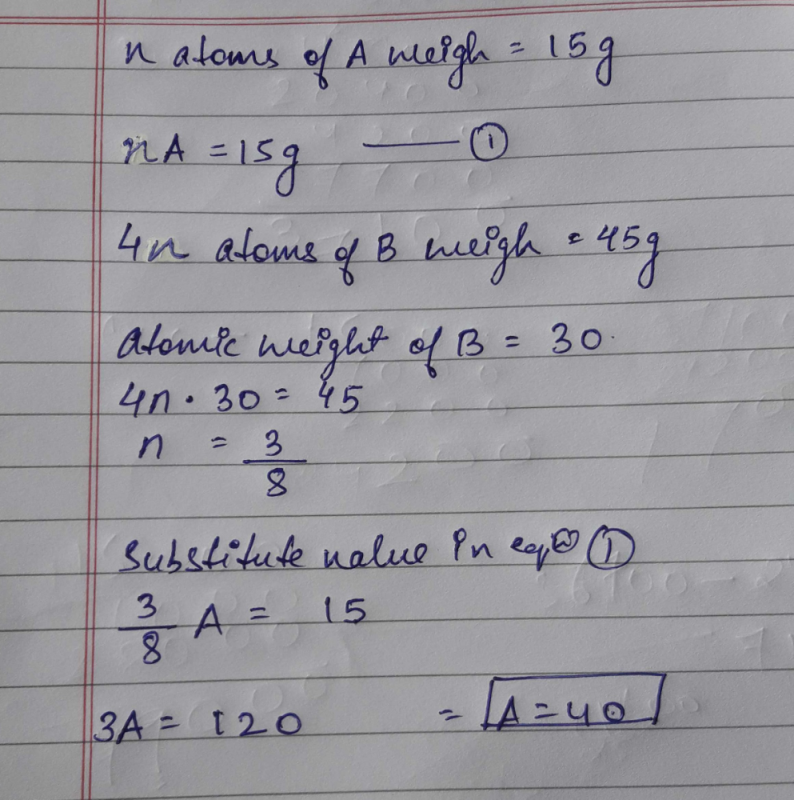 n atoms of A weigh = 15g
nA = 15g —— ①
4n atoms of B weigh = 45g
Atomic weight of B = 30.
4n · 30 = 45
n = 3/8
Substitute value in eqⁿ ①
3/8 A = 15
3A = 120 = A = 40